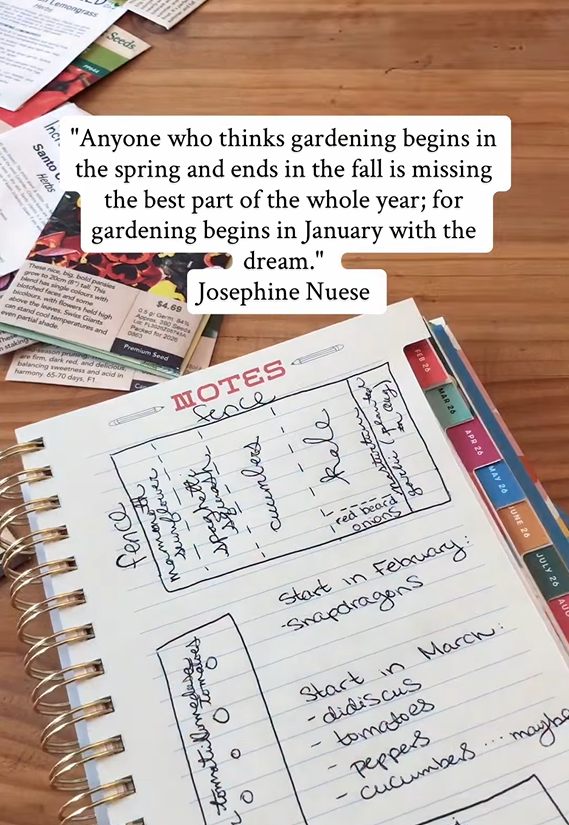 Lemongrass
Herbs
Seeds
Santo
Herbs
"Anyone who thinks gardening begins in
the spring and ends in the fall is missing
the best part of the whole year; for
gardening begins in January with the
dream."
Josephine Nuese
These nice, big, bold pansies
grow to 20cm (8") tall. This
blend has single colours with
blotched faces and some
bicolours, with flowers held high
above the leaves. Swiss Giants
can stand cool temperatures and
even partial shade.
$4.69
Packed for 2026
Premium Seed
are firm, dark red, and delicious.
balancing sweetness and acid in
harmony. 65-70 days. F1
NOTES
FEB 26
MAR 26
APR 26
MAY 26
JUNE 26
JULY 26
AUG
fence
fence
mammoth
sunflower
spaghetti
squash
cucumbers
kale
red beard
onions
garlic (plant
Start in February:
-snapdragons
Start in March:
- didiscus
- tomatoes
- peppers
- cucumbers ... maybe
tomatoes